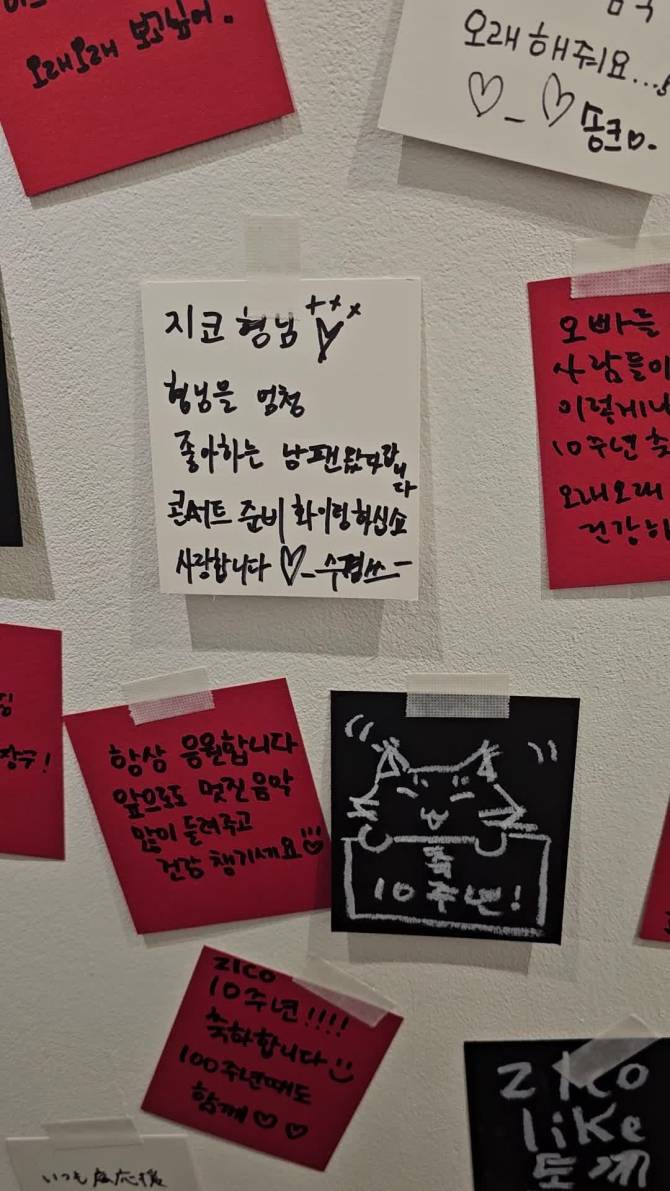 오래오래 보고싶어.
오래 해줘요...♪
♡_♡ 쫑크♡.
지코 형님
형님을 엄청
좋아하는 남팬 왔다갑니다
콘서트 준비 화이팅 하십쇼
사랑합니다 ♡_수겸쓰-
오빠들
사람들이
이렇게나
10주년 축
오래오래
건강히
항상 응원합니다
앞으로도 멋진 음악
많이 들려주고
건강 챙기세요
축
10주년!
ZICO
10주년!!!!
축하합니다
100주년때도
함께 ♡♡
ZICO
like
토끼
いつも応援